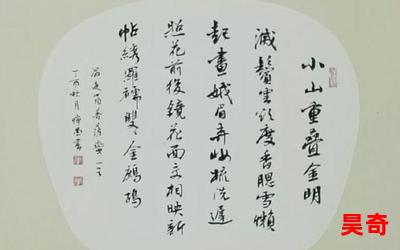 小山重疊金明
滅鬢雲欲度香腮雪懶
起畫娥眉弄妝梳洗遲
照花前後鏡花面交相映新
帖綉羅襦雙〻金鷓鴣
溫庭筠菩薩蠻一首
丁亥秋月 書
昊奇